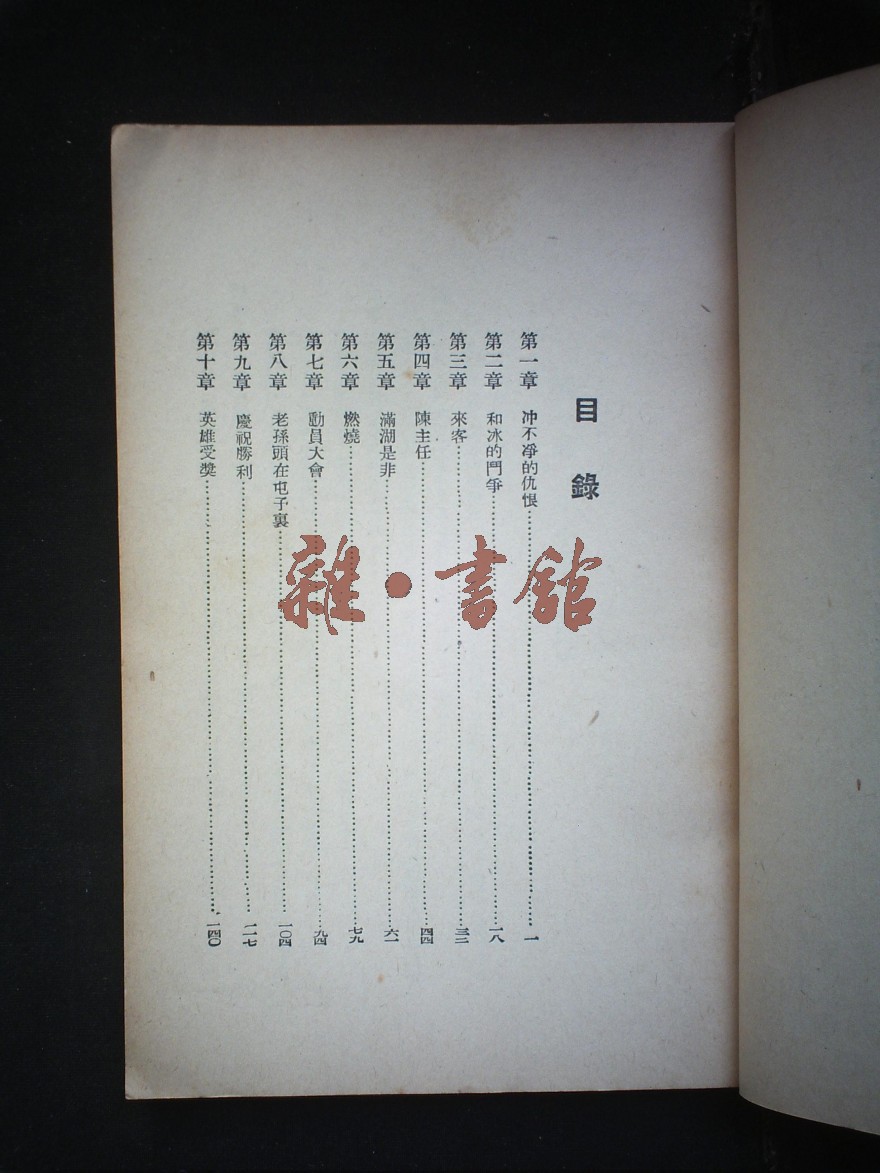 目錄
第一章 冲不净的仇恨……一
第二章 和冰的鬥爭……一八
第三章 來客……三二
第四章 陳主任……四四
第五章 滿湖是非……六一
第六章 燃燒……七九
第七章 動員大會……九四
第八章 老孫頭在屯子裏……一〇四
第九章 慶祝勝利……一二七
第十章 英雄受獎……一四〇
雜·書館